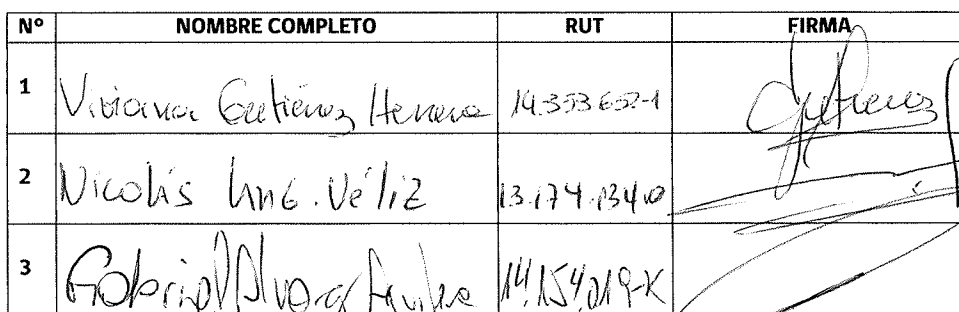 Nº NOMBRE COMPLETO RUT FIRMA
1 Viviana Gutiérrez Herrera 14.353.652-1
2 Nicolás Véliz 13.174.134-0
3 Gabriel Alvarez 14.154.019-K